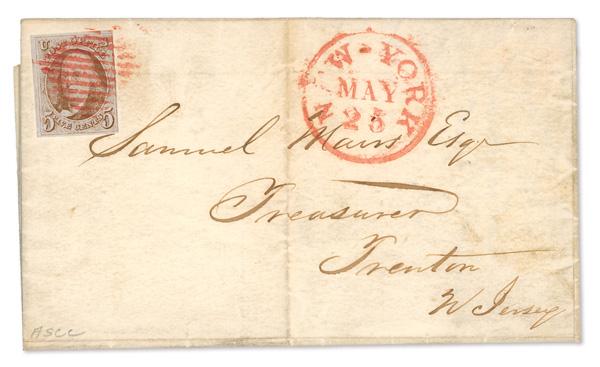 U
POST OFFICE
5 FIVE CENTS 5
NEW-YORK
MAY
25
Samuel Mairs Esqr
Treasurer
Trenton
N Jersey
ASCC